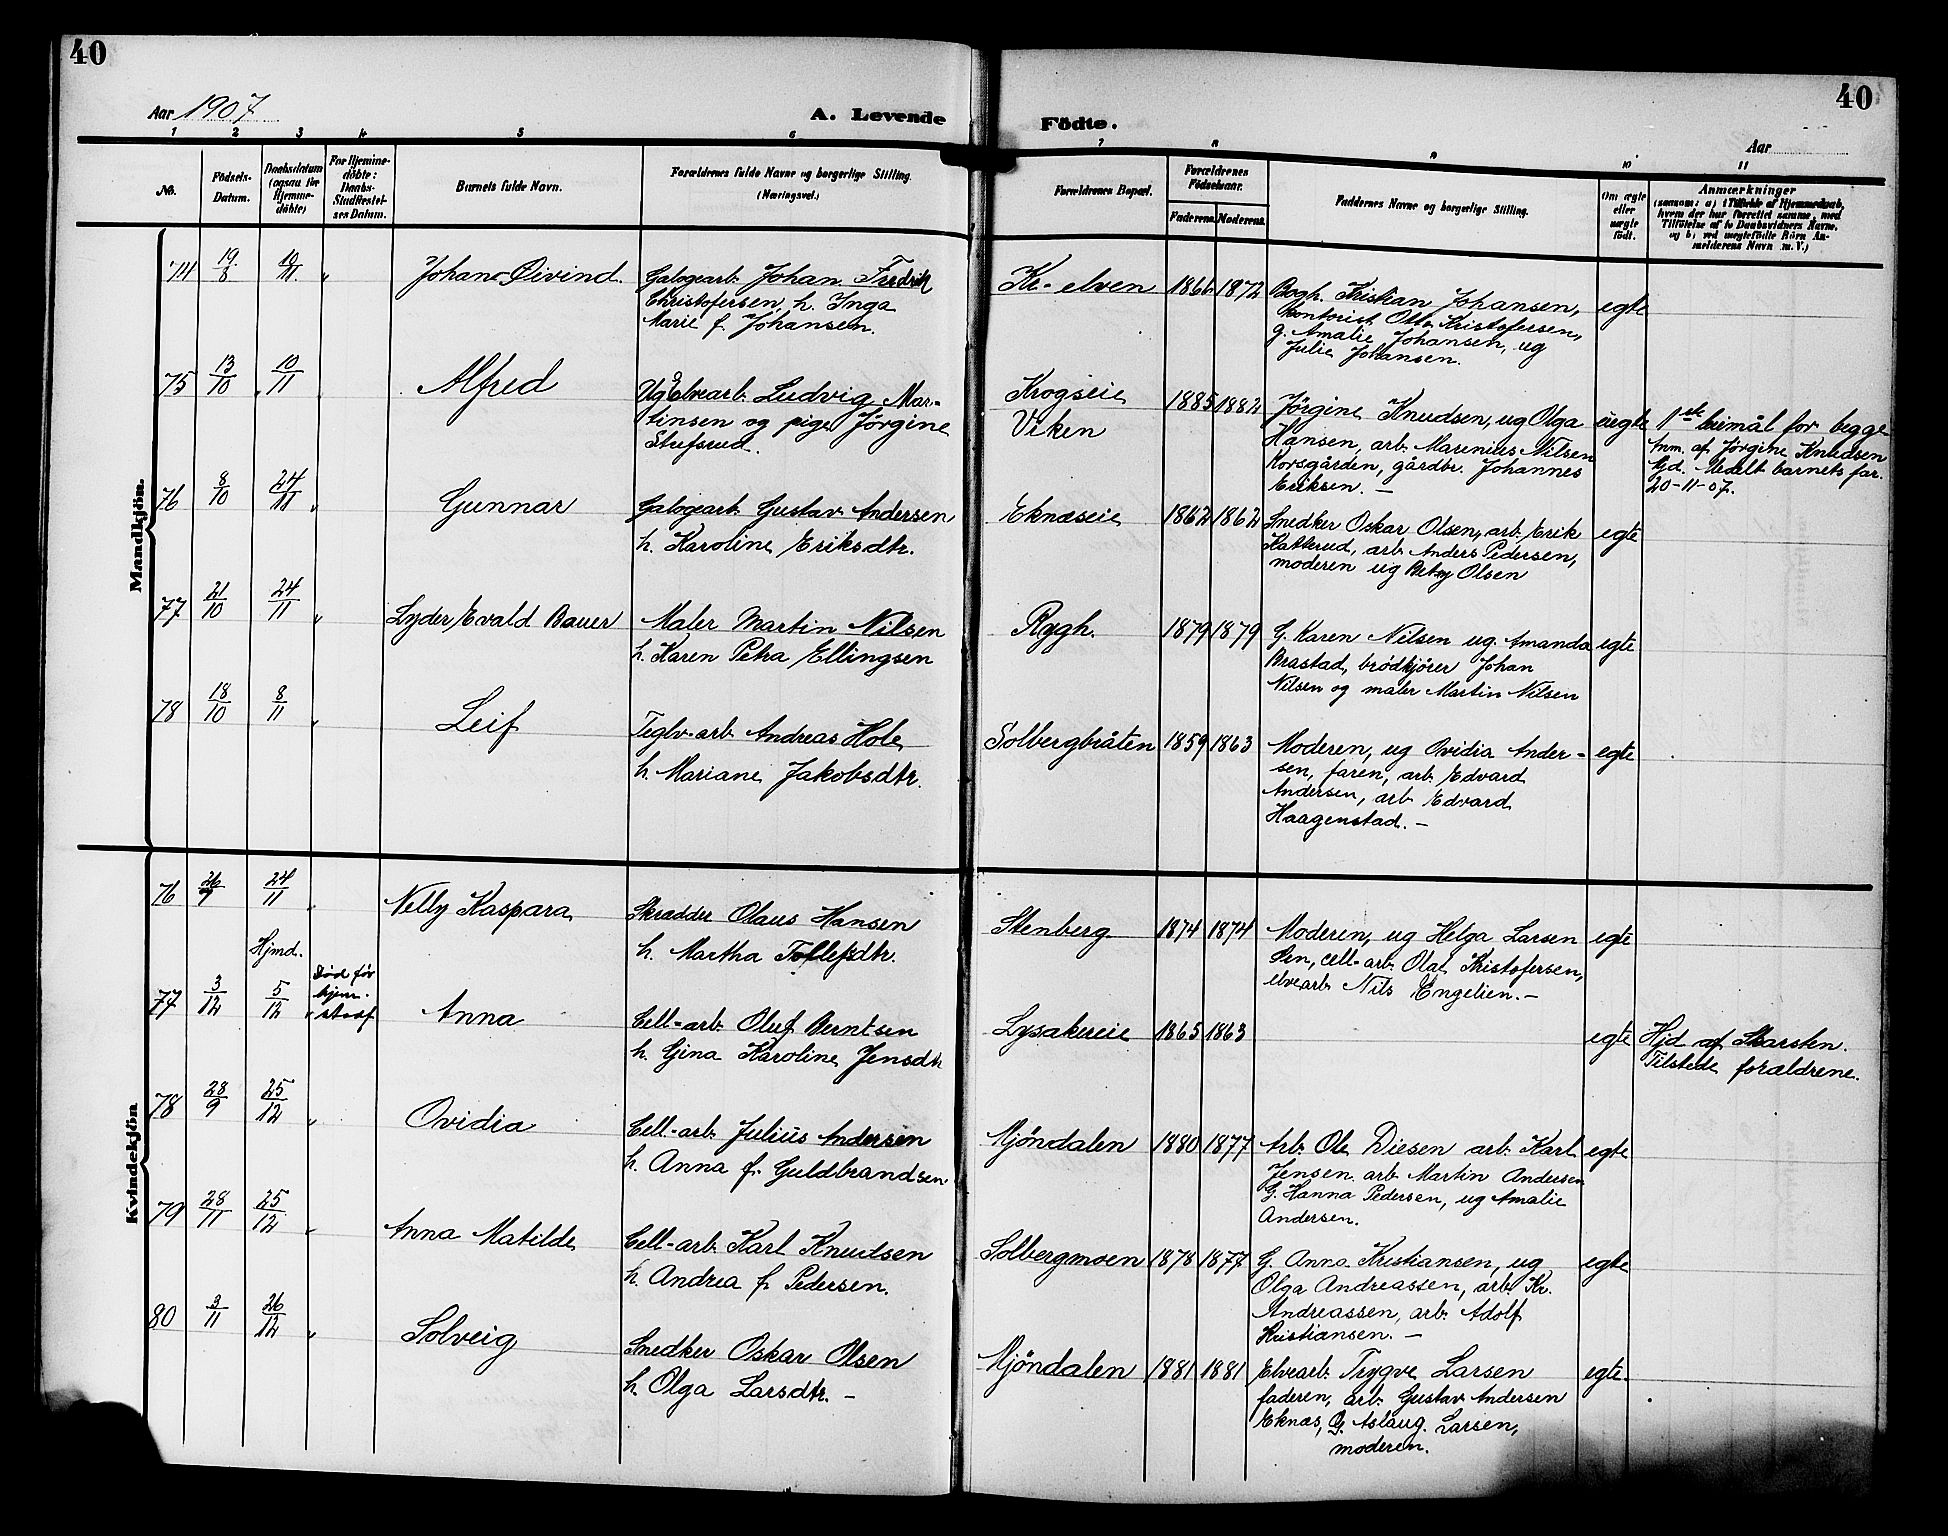 40
40
Aar 1907
A. Levende
Födte.
Aar
1 2 3 4 5 6 7 8 9 10 11
No.
Födsels-Datum.
Daabsdatum (ogsaa for Hjemme-döbte)
For Hjemme-döbte: Daabs-Stadfestel-ses Datum.
Barnets fulde Navn.
Forældrenes fulde Navne og borgerlige Stilling.
(Næringsvei.)
Forældrenes Bopæl.
Forældrenes Födselsaar.
Faderens. Moderens.
Faddernes Navne og borgerlige Stilling.
Om ægte eller uægte födt.
Anmærkninger
(saasom: a) i Tilfælde af Hjemmedaab,
hvem der har forrettet samme, med
Tilföielse af to Daabsvidners Navne,
og b) ved uægtefödte Börn An-
melderens Navn m. V.)
Mandkjön.
74 19/8 10/11 " Johan Öivind
Galogearb. Johan Fredrik
Christofersen, h. Inga
Marie f. Johansen.
Kr-elven 1866 1872
Bogh. Kristian Johansen,
kontorist Otto Kristofersen,
g. Amalie Johansen, ug
Julie Johansen.
egte
75 13/10 10/11 " Alfred
Ug Elvearb. Ludvig Mar-
tinsen og pige Jörgine
Stufsrud.
Krogseie
Viken
1885 1882
Jörgine Knudsen, ug Olga
Hansen, arb. Marenius Nilsen
Korsgården, gårdbr. Johannes
Eriksen. —
uegte
1ste leirmål for begge
Anm. af Jørgine Knudsen
Gjd. Medelt barnets far.
20-11-07.
76 8/10 24/11 " Gunnar
Galogearb. Gustav Andersen
h. Karoline Eriksdtr.
Eknæseie 1862 1862
Snedker Oskar Olsen, arb. Erik
Katterud, arb. Anders Pedersen,
moderen ug Betsy Olsen
egte
77 21/10 24/11 " Lyder Evald Bauer
Maler Martin Nilsen
h. Karen Petra Ellingsen
Rygh. 1879 1879
G. Karen Nilsen ug. Amanda
Brastad, brödkjörer Johan
Nilsen og maler Martin Nilsen
egte
78 18/10 8/11 " Leif
Teglv-arb. Andreas Hole
h. Mariane Jakobsdtr.
Solbergbråten 1859 1863
Moderen, ug Ovidia Ander-
sen, faren, arb. Edvard
Andersen, arb. Edvard
Haagenstad. —
egte
Kvindekjön
76 26/9 24/11 " Nelly Kaspara
Skrædder Olaus Hansen
h. Martha Tollefsdtr.
Stenberg 1874 1874
Moderen, ug Helga Larsen
Sen, cell-arb. Olaf Kristofersen,
elvearb. Nils Engelien. —
egte
77 3/12 Hjmd. 5/12 " Död för
hjem.
stadf
Anna
Cell-arb. Oluf Berntsen
h. Gina Karoline Jensdtr
Lysakereie 1865 1863
egte
Hjd af Skarsten.
Tilstede forældrene.
78 28/9 25/12 " Ovidia
Cell-arb. Julius Andersen
h. Anna f. Guldbrandsen
Mjöndalen 1880 1877
Arb. Ole Diesen arb. Karl
Jensen. arb. Martin Andersen
G. Hanna Pedersen, ug Amalie
Andersen.
egte
79 28/11 25/12 " Anna Matilde
Cell-arb. Karl Knudsen
h. Andrea f. Pedersen.
Solbergmoen 1878 1877
G. Anna Kristiansen, ug
Olga Andreassen, arb. Kr.
Andreassen, arb. Adolf
Kristiansen. —
egte
80 3/11 26/12 " Solveig
Snedker Oskar Olsen
h. Olga Larsdtr. —
Mjöndalen 1881 1881
Elvearb. Trygve Larsen
faderen, arb. Gustav Andersen
Eknæs, G. Aslaug Larsen,
moderen.
egte.